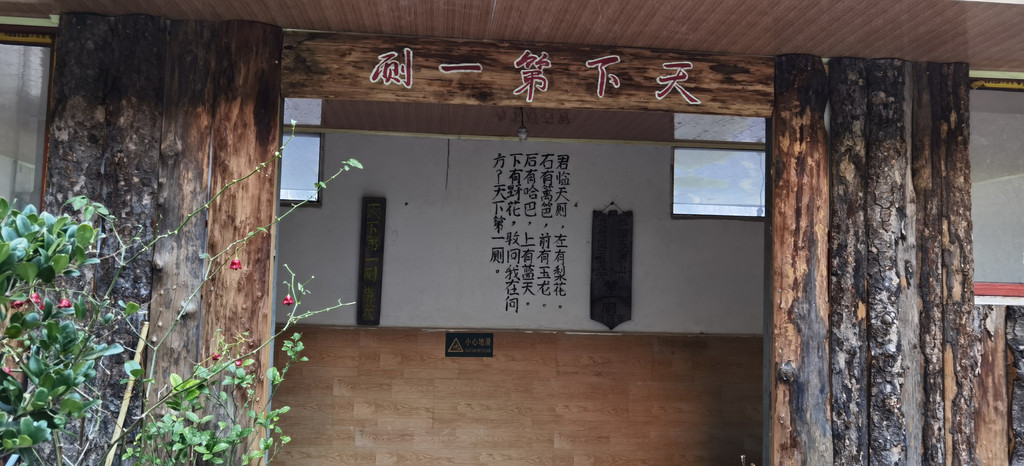 天下第一厕
君临天厕，左有梨花。
右有篱笆，前有玉龙。
后有哈巴，上有蓝天，
下有野花，敢问我在何
方？天下第一厕。
小心地滑